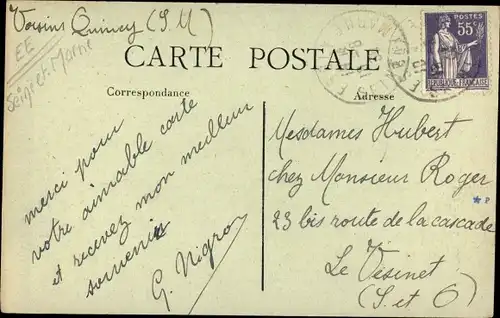 Voisins Quincy (S M)
EE
Seine et Marne
CARTE POSTALE
POSTES
55c
REPUBLIQUE FRANCAISE
Correspondance
Adresse
merci pour
votre aimable carte
et recevez mon meilleur
souvenir
G. Nigro
Mesdames Hubert
chez Monsieur Roger
* P
23 bis route de la cascade
Le Vésinet
(S. et O)